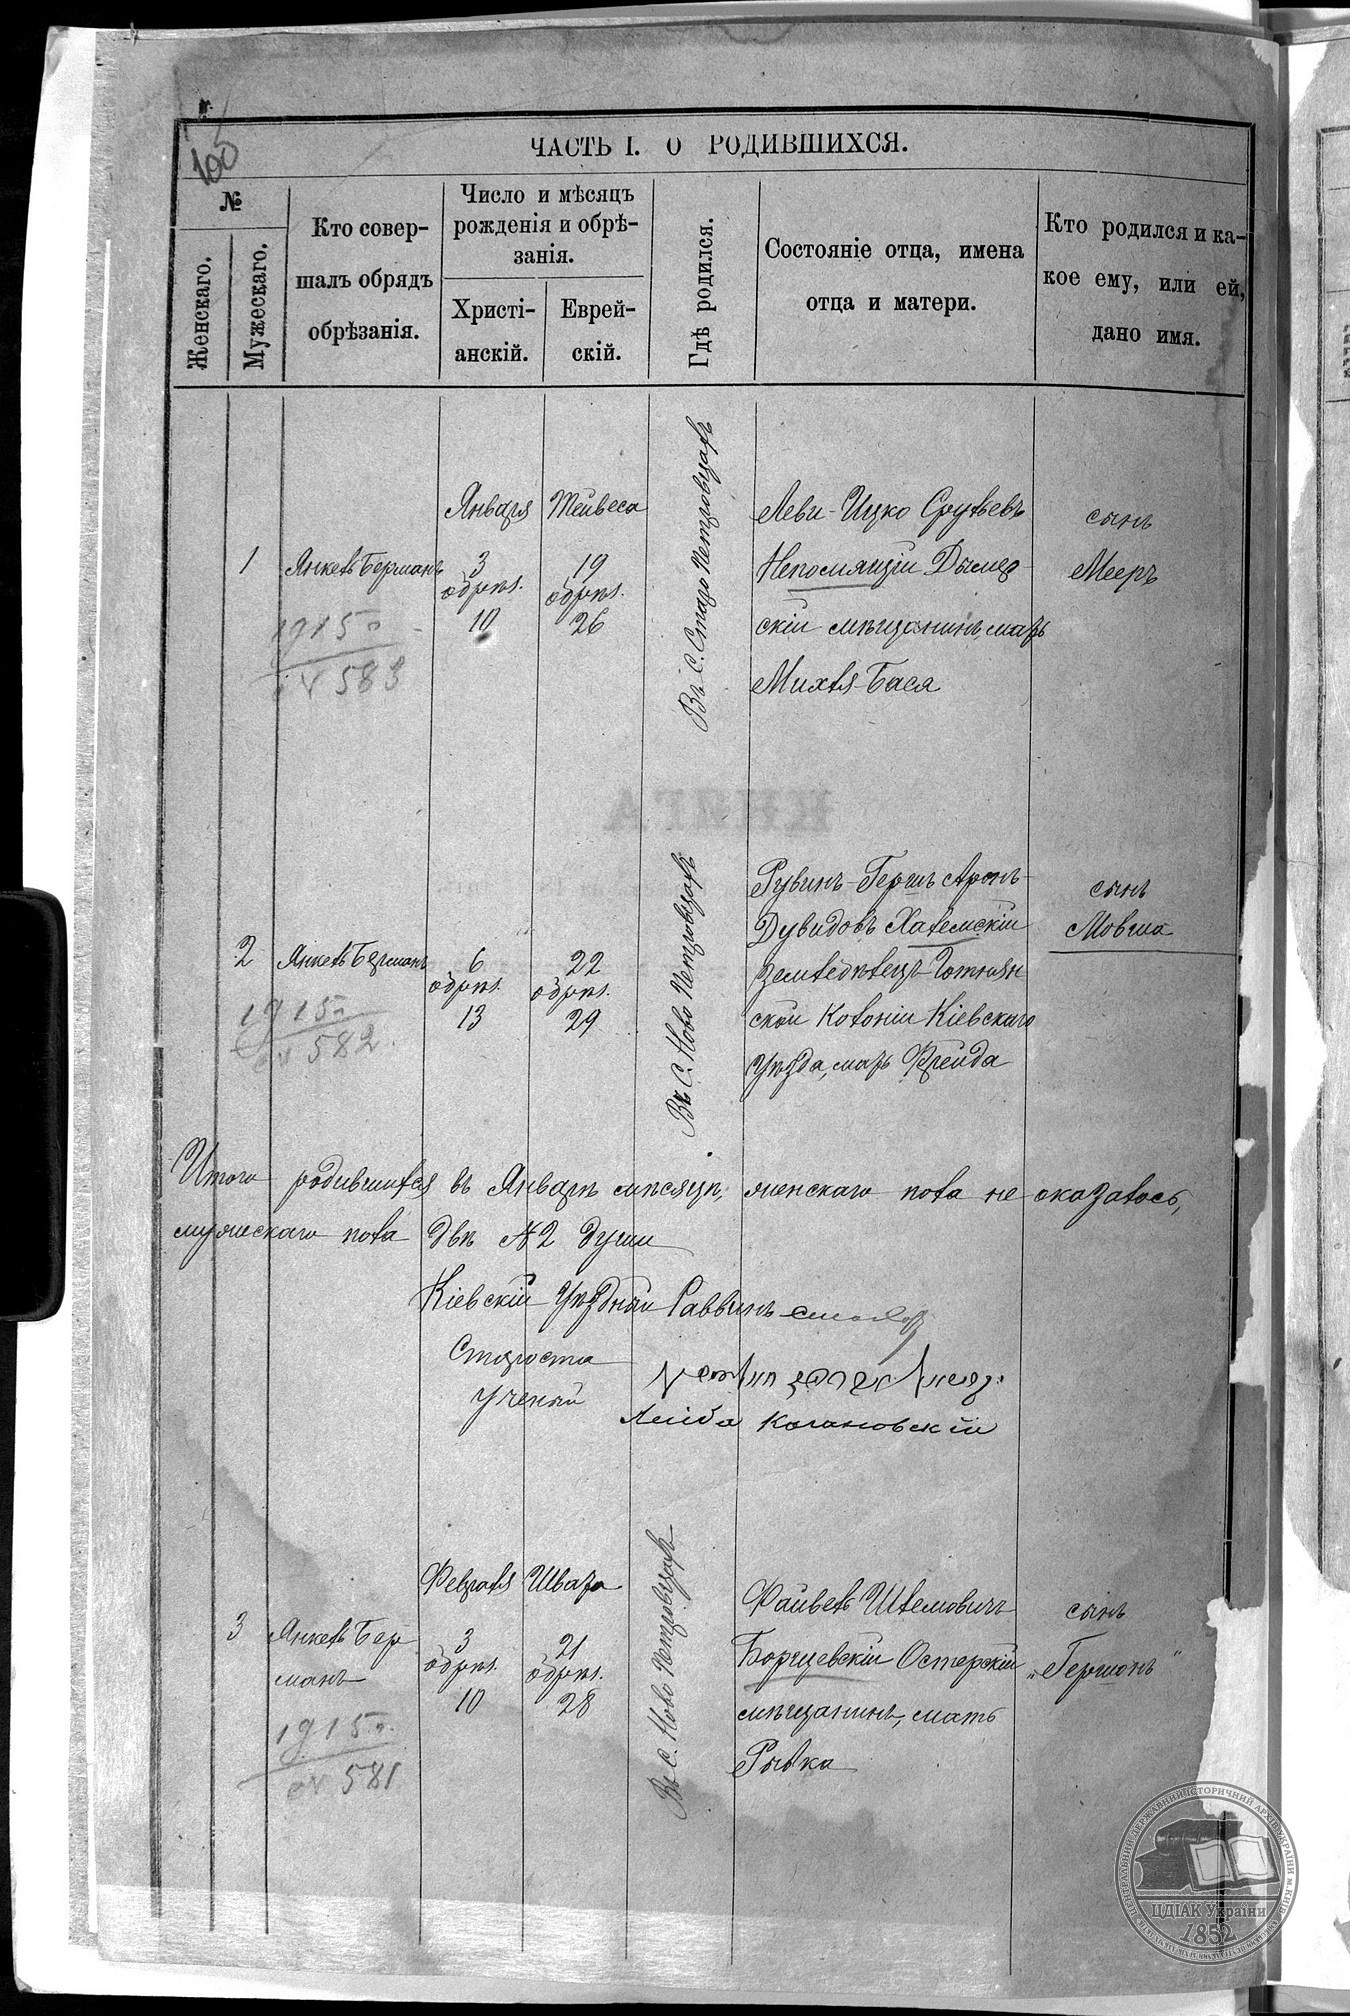 100
ЧАСТЬ I. О РОДИВШИХСЯ.
№
Женскаго.
Мужескаго.
Кто совер-
шалъ обрядъ
обрѣзанія.
Число и мѣсяцъ
рожденія и обрѣ-
занія.
Христі-
анскій.
Еврей-
скій.
Гдѣ родился.
Состояніе отца, имена
отца и матери.
Кто родился и ка-
кое ему, или ей,
дано имя.
1
Янкель Берманъ
1915
583
Января
3
обрѣз.
10
Тейвеса
19
обрѣз.
26
Въ с. Старо Петровцахъ
Леви-Ицко Срулевъ
Непомнящій Дымер-
скій мѣщанинъ, мать
Михля-Бася
сынъ
Мееръ
КНИГА
2
Янкель Берманъ
1915
582
6
обрѣз.
13
22
обрѣз.
29
Въ с. Ново Петровцахъ
Рувинъ-Гершъ Аронъ-
Дувидовъ Халемскій
земледѣлецъ
ской Колоніи Кіевскаго
уѣзда, мать Фрейда
сынъ
Мовша
Итого родившихся въ Январѣ мѣсяцѣ, женскаго пола не оказалось,
мужескаго пола двѣ №2 души
Кіевскій Уѣздный Раввинъ
Староста
Ученый
Лейба Кагановскій
3
Янкель Бер
манъ
1915
581
Февраля
3
обрѣз.
10
Швата
21
обрѣз.
28
Въ с. Ново Петровцахъ
Файвель Шлемовичъ
Борщевскій Остерскій
мѣщанинъ, мать
Рывка
сынъ
„Гершонъ"
ЦЕНТРАЛЬНИЙ ДЕРЖАВНИЙ ІСТОРИЧНИЙ АРХІВ УКРАЇНИ м. КИЇВ
ЦДІАК України
1852